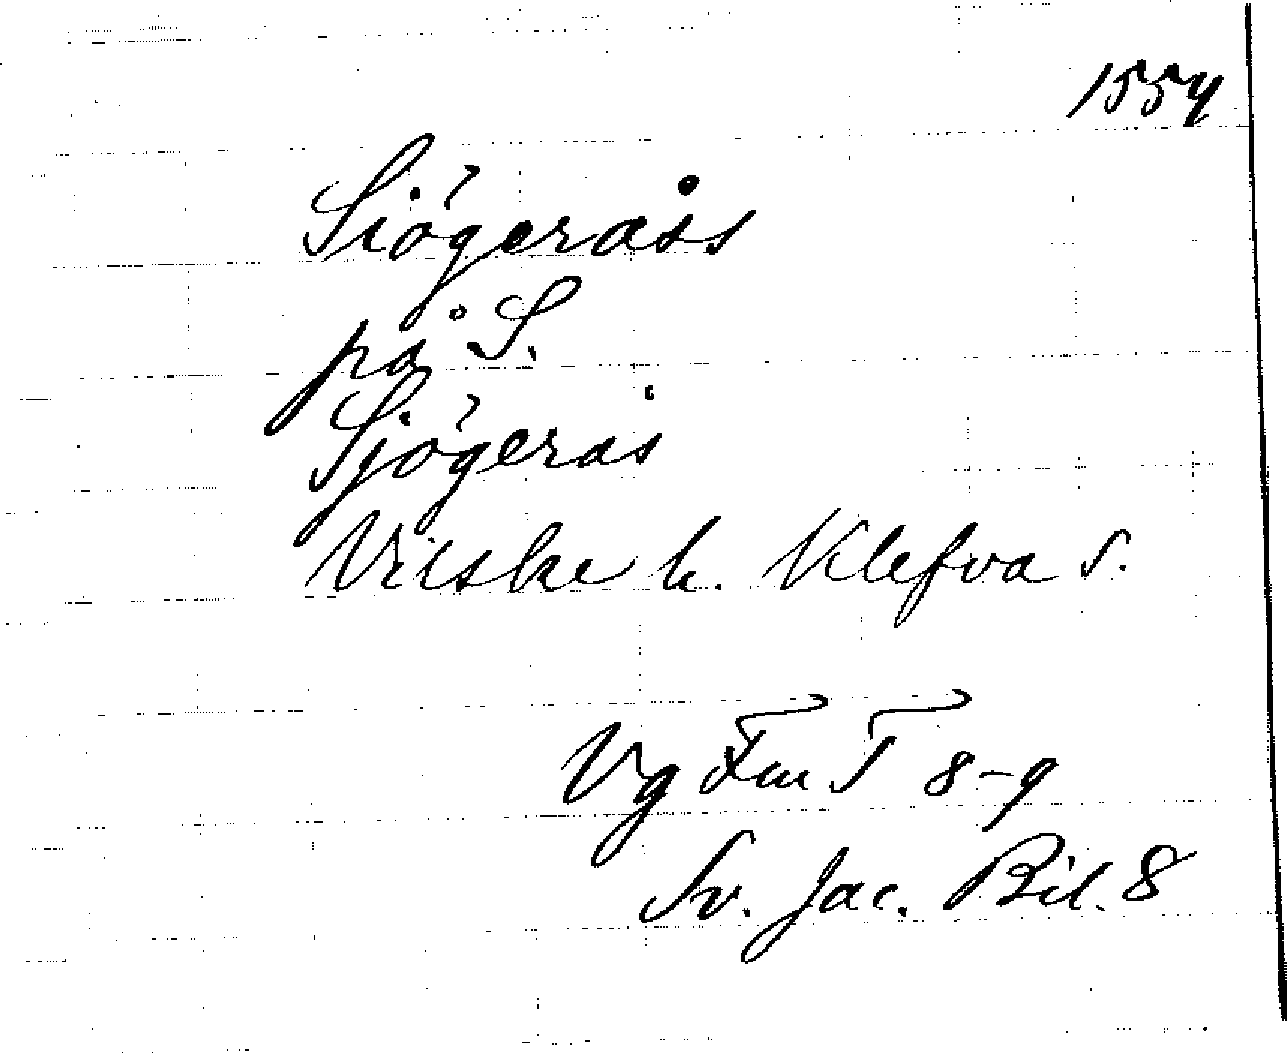 1554
Siögeråss
på S.
Sjögerås
Vilske h. Klefva s.
Vg Fm T 8-9
Sv. Jac. Bil. 8